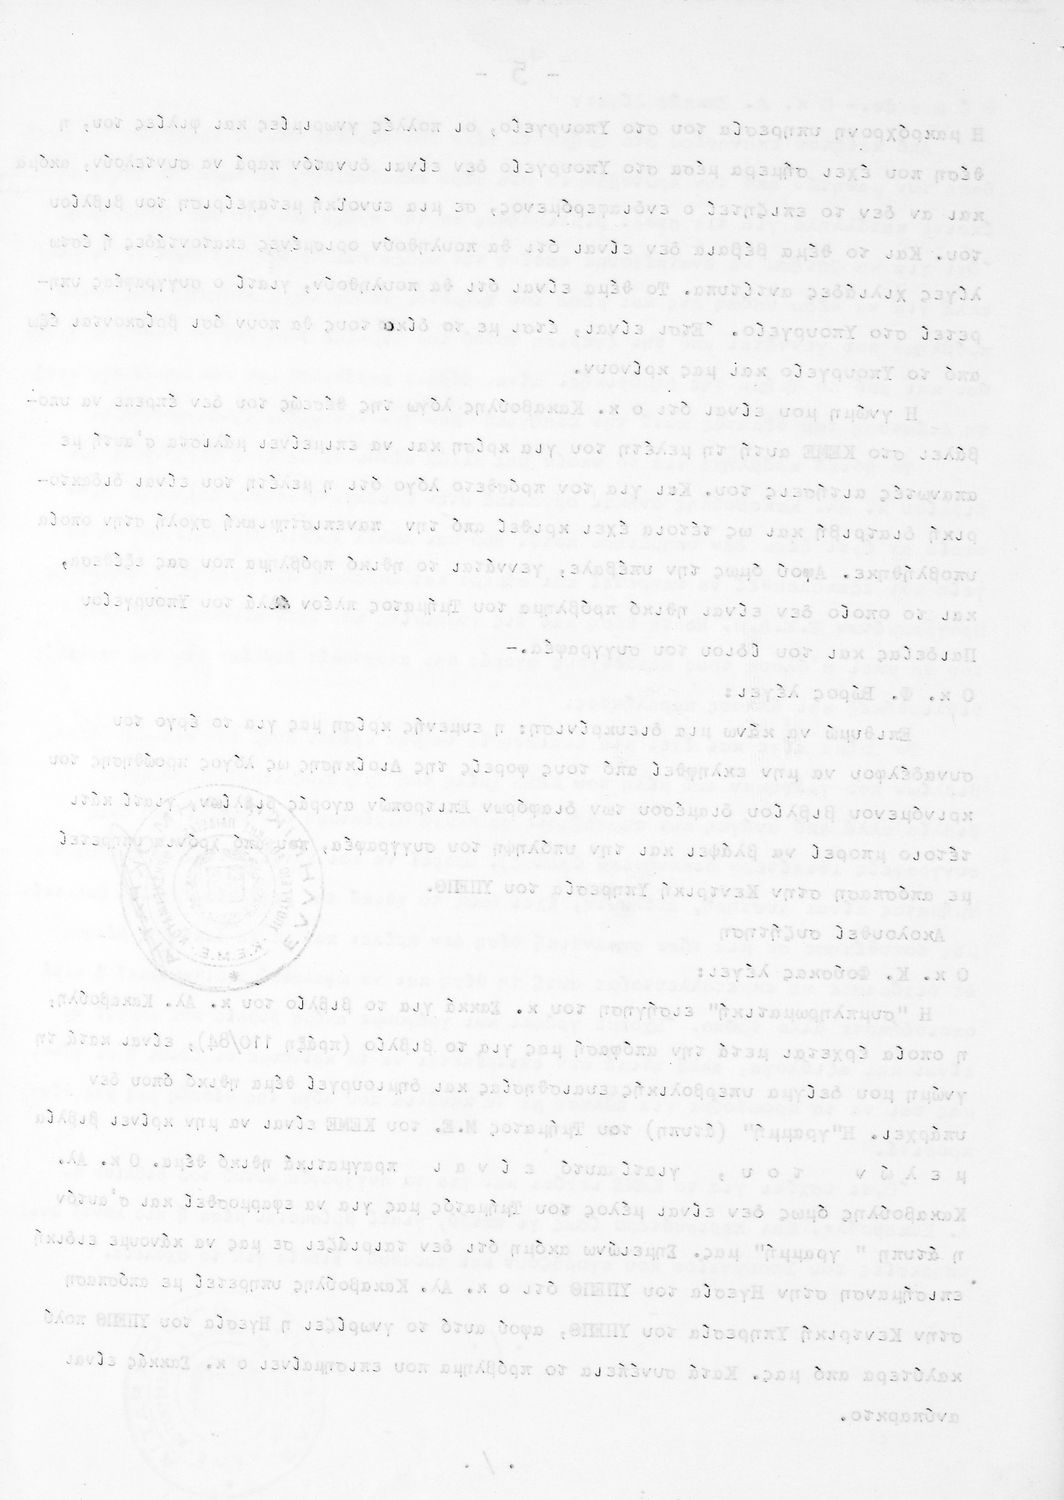 - 5 -
Η μακρόχρονη υπηρεσία του στο Υπουργείο, οι πολλές γνωριμίες και φιλίες του, η
θέση που έχει σήμερα μέσα στο Υπουργείο δεν είναι δυνατόν παρά να συντελούν, ακόμα
και αν δεν το επιζητεί ο ενδιαφερόμενος, σε μια ευνοϊκή μεταχείριση του βιβλίου
του. Και το θέμα βέβαια δεν είναι ότι θα πουληθούν ορισμένες εκατοντάδες ή έστω
λίγες χιλιάδες αντίτυπα. Το θέμα είναι ότι θα πουληθούν, γιατί ο συγγραφέας υπη-
ρετεί στο Υπουργείο. Έτσι είναι, έτσι με το δίκιο τους θα πουν όσοι βρίσκονται έξω
από το Υπουργείο και μας κρίνουν.
Η γνώμη μου είναι ότι ο κ. Κακαβούλης λόγω της θέσεώς του δεν έπρεπε να υπο-
βάλει στο ΚΕΜΕ αυτή τη μελέτη του για κρίση και να επιμείνει μάλιστα σ'αυτή με
απανωτές αιτήσεις του. Και για τον πρόσθετο λόγο ότι η μελέτη του είναι διδακτο-
ρική διατριβή και ως τέτοια έχει κριθεί από την πανεπιστημιακή σχολή στην οποία
υποβλήθηκε. Αφού όμως την υπέβαλε, γεννάται το ηθικό πρόβλημα που σας εξέθεσα,
και το οποίο δεν είναι ηθικό πρόβλημα του Τμήματος πλέον αλλά του Υπουργείου
Παιδείας και του ίδιου του συγγραφέα.-
Ο κ. Φ. Βώρος λέγει:
Επιθυμώ να κάνω μια διευκρίνιση: η ευμενής κρίση μας για το έργο του
συναδέλφου να μην εκληφθεί από τους φορείς της Διοίκησης ως λόγος προώθησης του
κρινόμενου βιβλίου διαμέσου των διαφόρων Επιτροπών αγοράς βιβλίων, γιατί κάτι
τέτοιο μπορεί να βλάψει και την υπόληψη του συγγραφέα, που από χρόνια υπηρετεί
με απόσπαση στην Κεντρική Υπηρεσία του ΥΠΕΠΘ.
Ακολουθεί συζήτηση
Ο κ. Κ. Φούσκας λέγει:
Η "συμπληρωματική" εισήγηση του κ. Σακκά για το βιβλίο του κ. Αλ. Κακαβούλη,
η οποία έρχεται μετά την απόφασή μας για το βιβλίο (πράξη 110/84), είναι κατά τη
γνώμη μου δείγμα υπερβολικής ευαισθησίας και δημιουργεί θέμα ηθικό όπου δεν
υπάρχει. Η"γραμμή" (άτυπη) του Τμήματος Μ.Ε. του ΚΕΜΕ είναι να μην κρίνει βιβλία
μ ε λ ώ ν τ ο υ, γιατί αυτό ε ί ν α ι πραγματικά ηθικό θέμα. Ο κ. Αλ.
Κακαβούλης όμως δεν είναι μέλος του Τμήματός μας για να εφαρμοσθεί και σ'αυτόν
η άτυπη " γραμμή" μας. Σημειώνω ακόμη ότι δεν ταιριάζει σε μας να κάνουμε ειδική
επισήμανση στην Ηγεσία του ΥΠΕΠΘ ότι ο κ. Αλ. Κακαβούλης υπηρετεί με απόσπαση
στην Κεντρική Υπηρεσία του ΥΠΕΠΘ, αφού αυτό το γνωρίζει η Ηγεσία του ΥΠΕΠΘ πολύ
καλύτερα από μας. Κατά συνέπεια το πρόβλημα που επισημαίνει ο κ. Σακκάς είναι
ανύπαρκτο.
./.
ΕΛΛΗΝΙΚΗ
Κ.Ε.Μ.Ε.